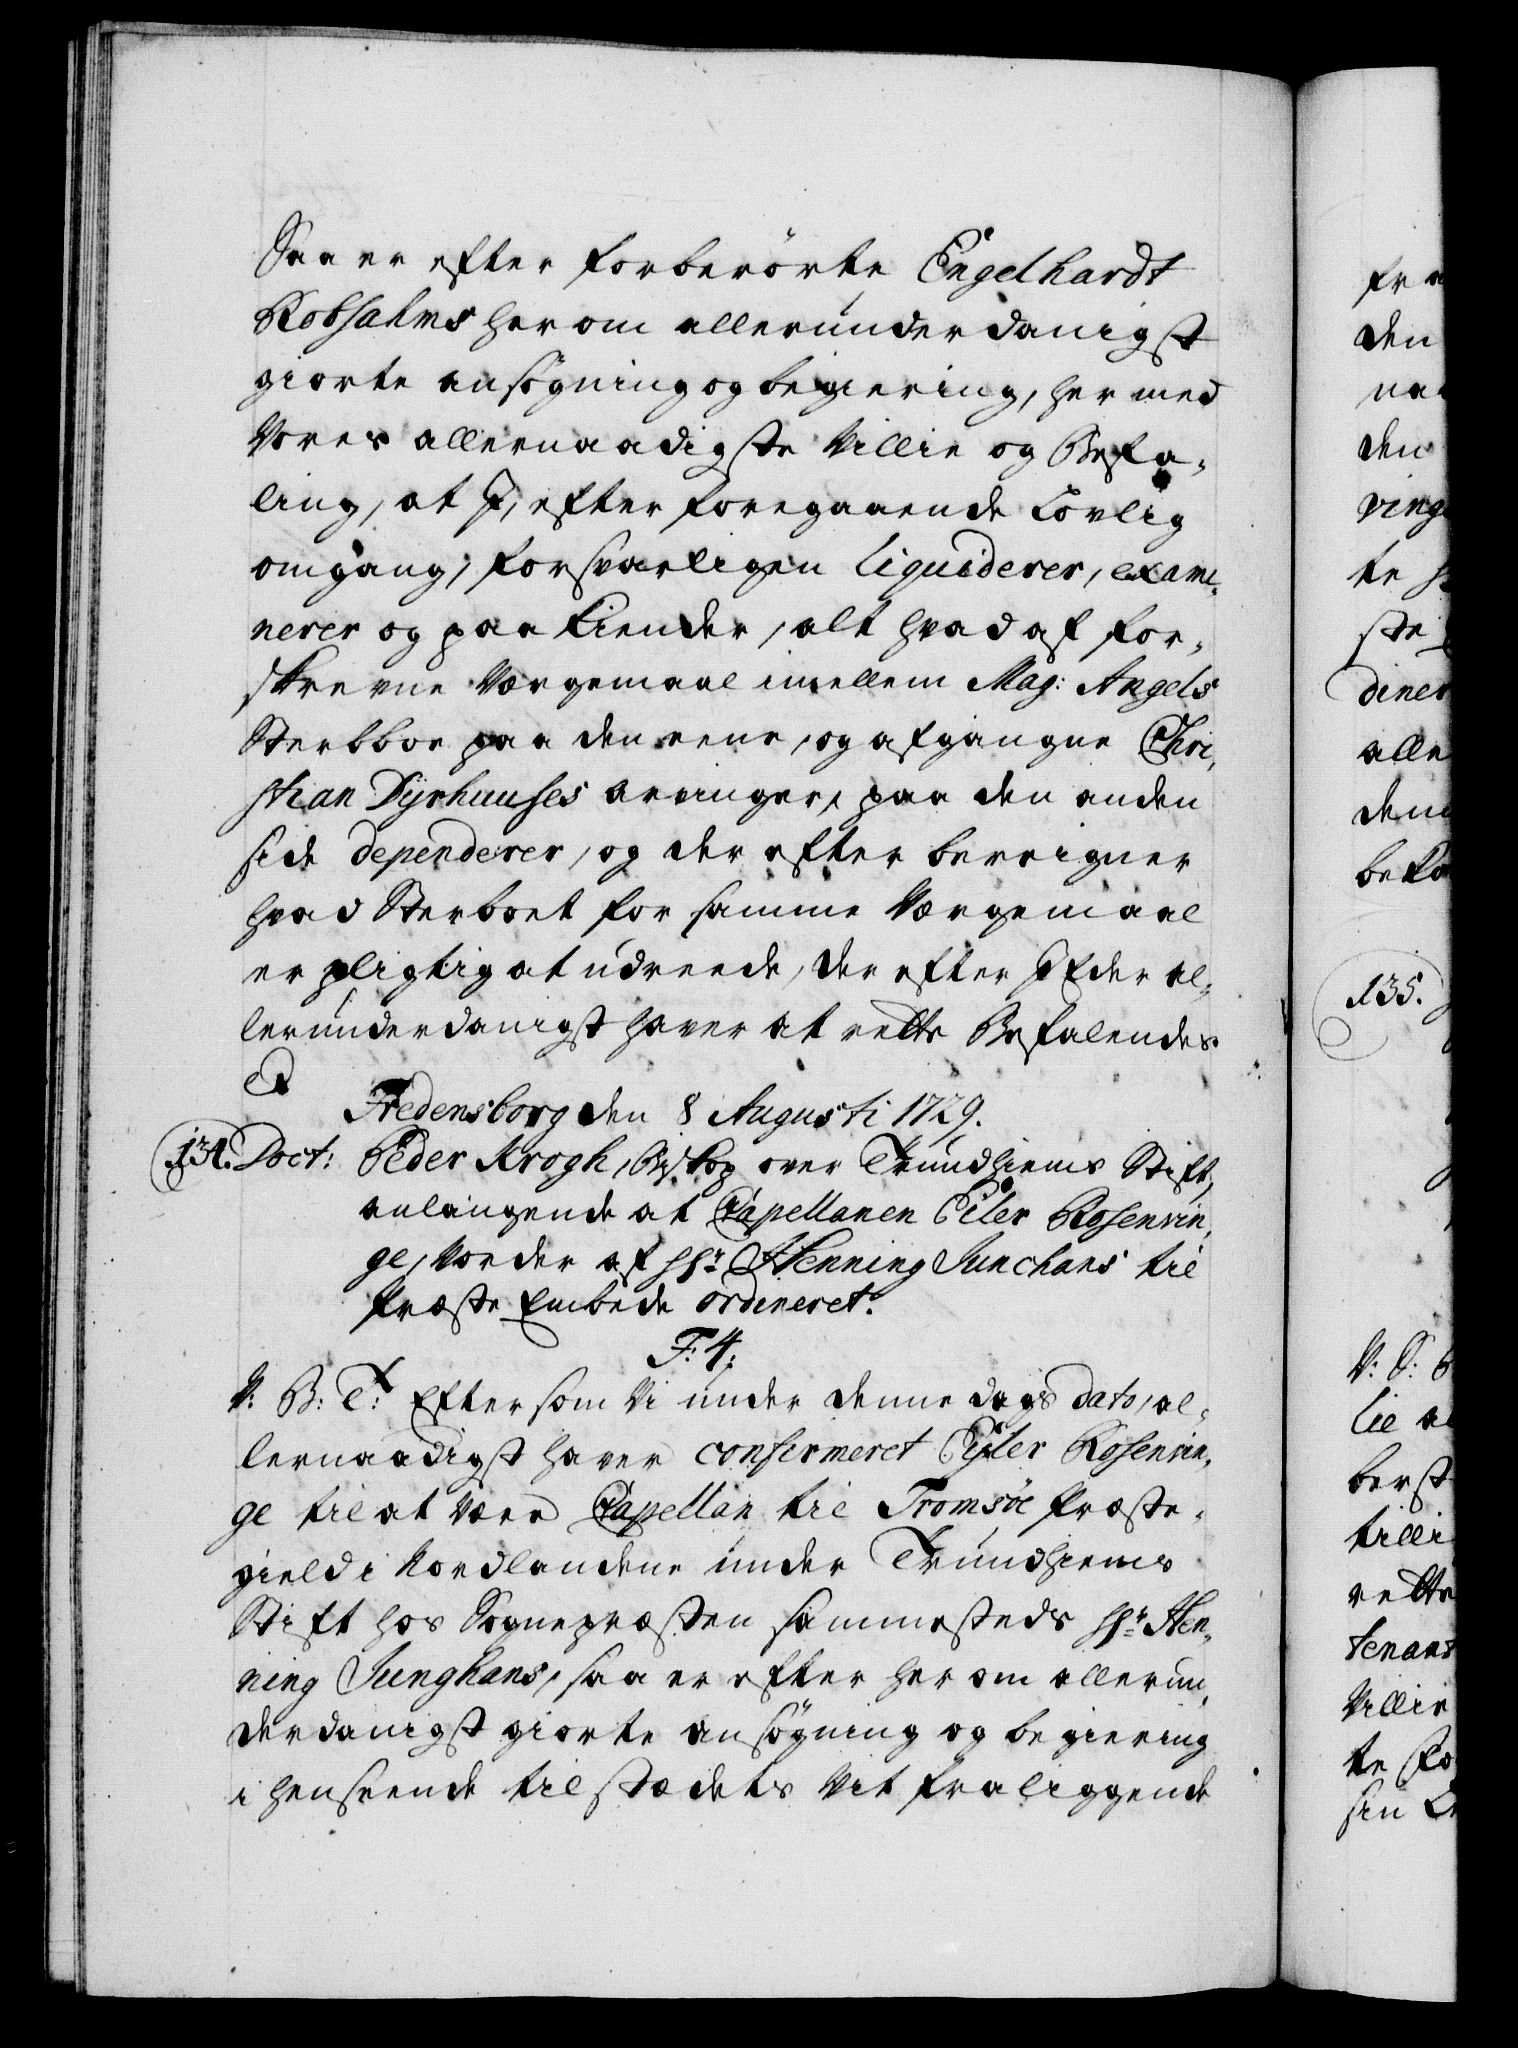 Saa er efter forberörte Engelhardt
Robsahms her om allerunderdanigst
giorte ansögning og begiering, her med
Vores allernaadigste Villie og Befa-
ling, at I, efter foregaaende Lovlig
omgang, forsvarligen liquiderer, exami-
nerer og paa kiender, alt hvad af for-
skrevne Værgemaal imellem Mag: Angels
Sterbboe paa den eene, og afgangne Chri-
stian Dyrhuuses arvinger, paa den anden
side dependerer, og der efter bereigner
hvad Sterboet for samme Værgemaal
er pligtig at udreede, der efter I Eder al-
lerunderdanigst haver at rette Befalendes
Et
Fredensborg den 8 Augusti 1729.
134. Doct: Peder Krogh, Biskop over Trundhiems Stift,
anlangende at Capellanen Eiler Rosenvin-
ge, Vorder af Hr: Henning Junchans til
Præste Embede ordineret.
F: 4:
V: B: T: Eftersom Vi under denne dags dato, al-
lernaadigst haver confirmeret Eyler Rosenvin-
ge til at Være Capellan til Tromsöe Præste-
gield i Nordlandene under Trundhiems
Stift hos Sognepræsten sammesteds Hr: Hen-
ning Junghans, saa er efter her om allerun-
derdanigst giorte ansögning og begiering
i henseende til stædets Vit fraliggende
den
den
ving
te
ste
diner
alle
dem
135.
V: S:
lie
berst
tilli
rette
tenant
Villie
te
sin